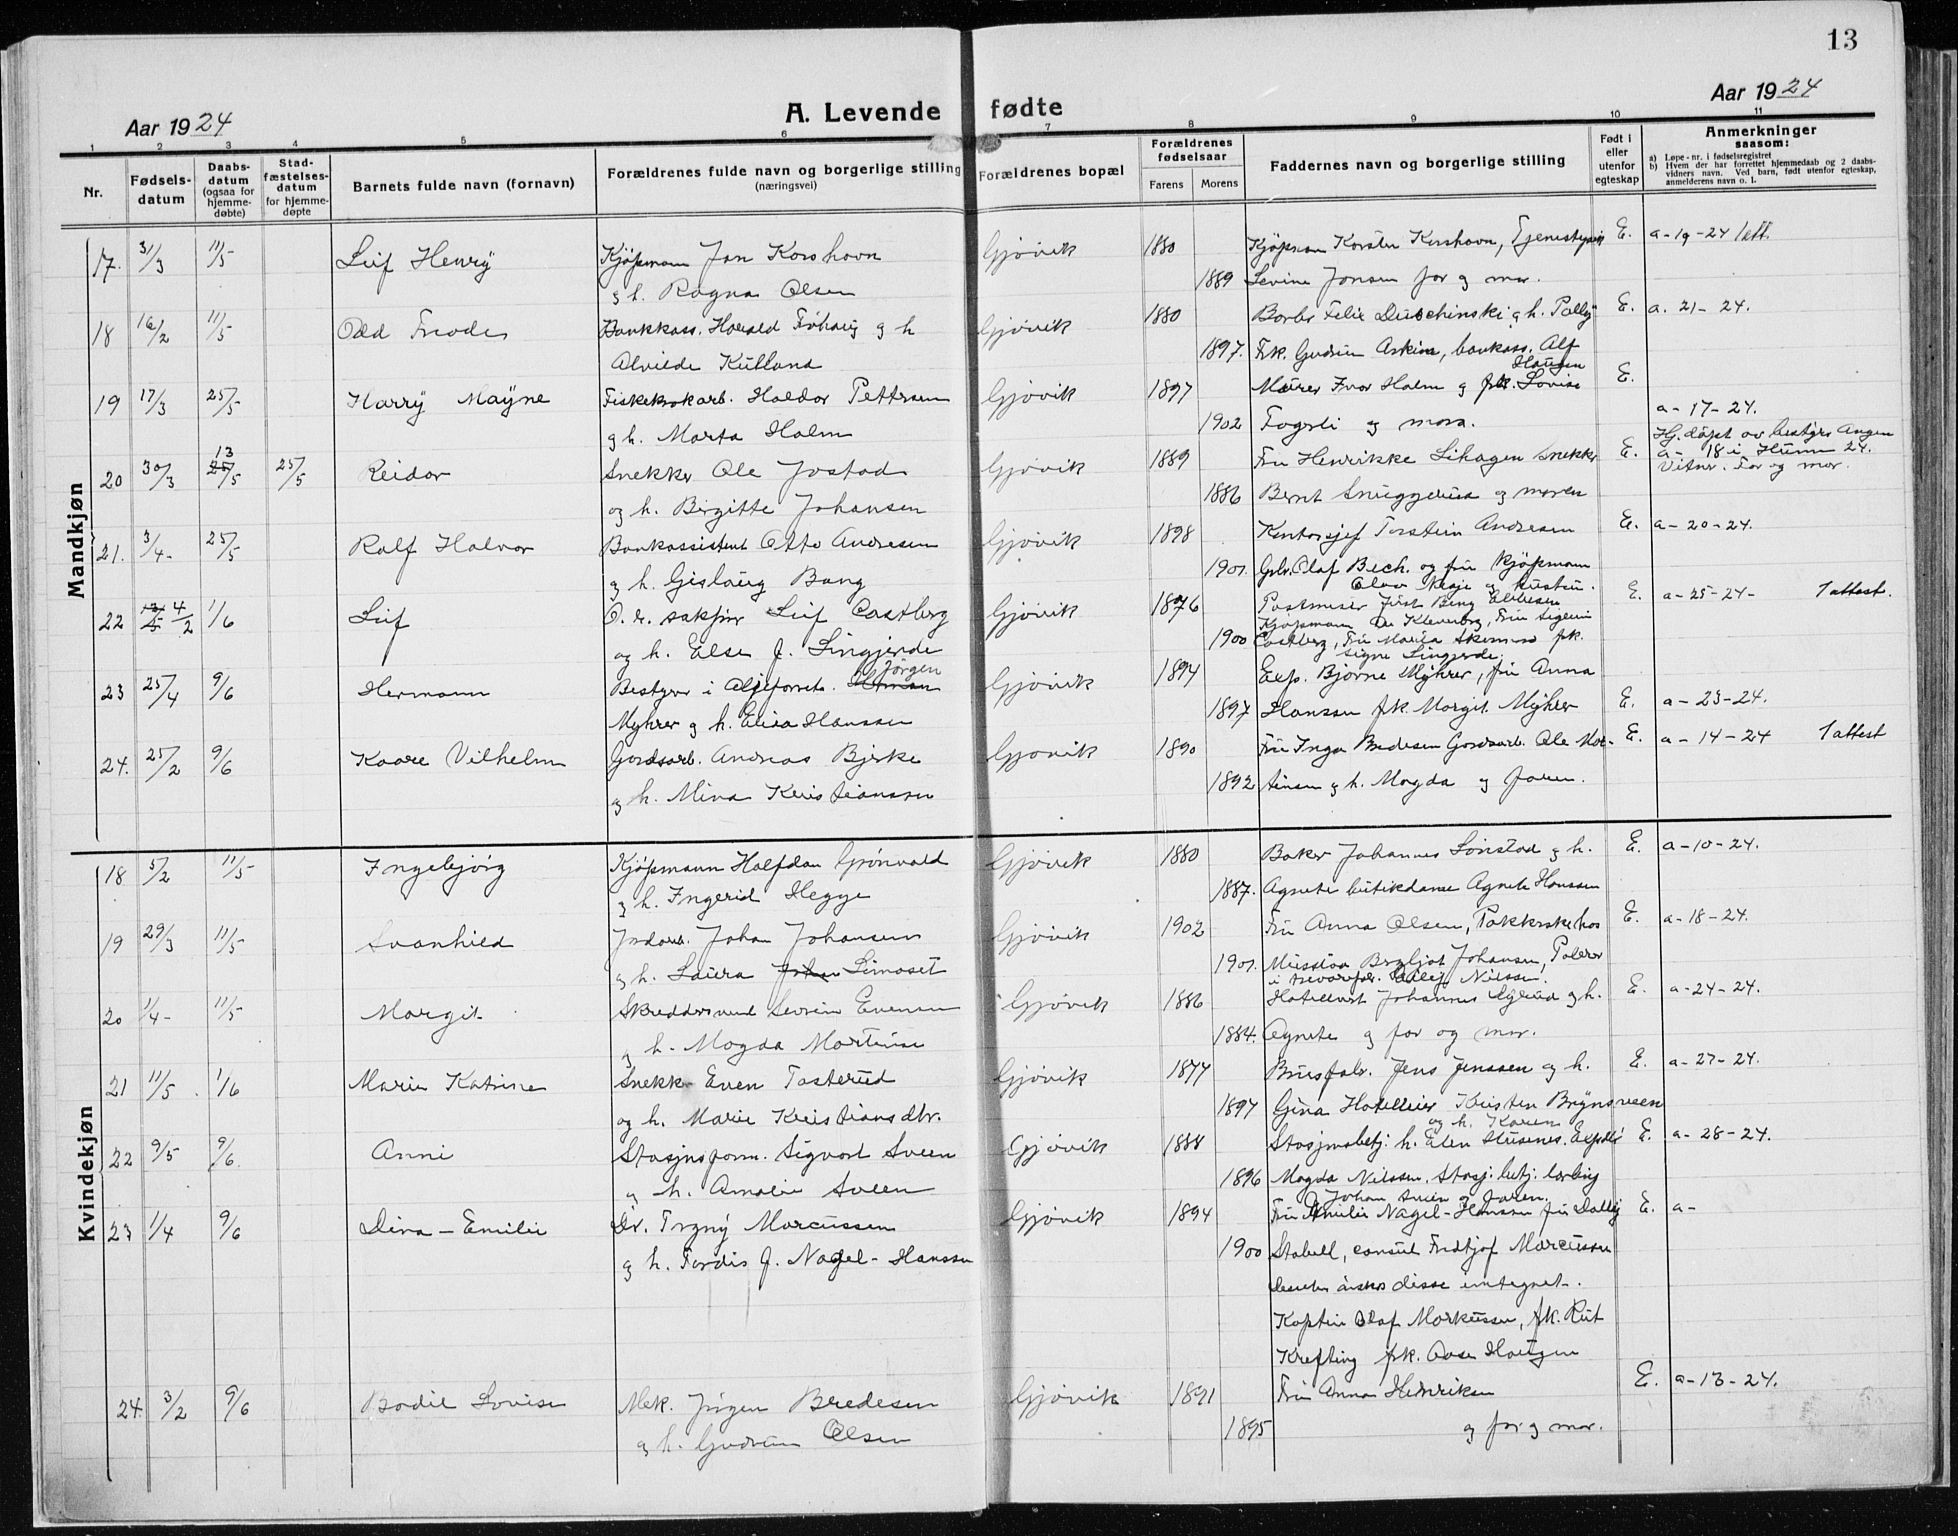 13
Aar 1924
A. Levende fødte
Aar 1924
1 2 3 4 5 6 7 8 9 10 11
Nr.
Fødsels-
datum
Daabs-
datum
(ogsaa for
hjemme-
døbte)
Stad-
fæstelses-
datum
for hjemme-
døpte
Barnets fulde navn (fornavn)
Forældrenes fulde navn og borgerlige stilling
(næringsvei)
Forældrenes bopæl
Forældrenes
fødselsaar
Farens
Morens
Faddernes navn og borgerlige stilling
Født i
eller
utenfor
egteskap
Anmerkninger
saasom:
a) Løpe-nr. i fødselsregistret
b) Hvem der har forrettet hjemmedaab og 2 daabs-
vidners navn. Ved barn, født utenfor egteskap,
anmelderens navn o. l.
Mandkjøn
17. 3/3 11/5 Leif Henry Kjøpmann Jan Korshavn Gjøvik 1880 Kjøpman Korshavn, E. a-19-24 1 att.
og h. Ragna Olsen 1889 Levine Jonsen far og mor.
18 16/2 11/5 Odd Frode Bankkass. Harald og h Gjøvik 1880 Felix Duschinski og h. Polly E. a. 21-24.
Alvilde Kulland 1897. Frk. Gudrun bankass. Alf
Haugen
19 17/3 25/5 Harry Mayne Haldor Pettersen Gjøvik 1897 Murer Ivar Holm og frk. Lovise E. a-17-24.
og h. Marta Holm 1902 Fogsli og mora.
20 30/3 13/5 25/5 Reidar Snekker Ole Jostad Gjøvik 1889 Fru Henrikke Lihagen Snekker E. Hj. døpt av bestyr. Angen
a- 18 i Hunn 24.
Vitner. Far og mor.
og h. Birgitte Johansen 1886 Bernt og moren
21. 3/4 25/5 Ralf Halvor Bankassistent Otto Andresen Gjøvik 1898 Kontorsjef Torstein Andresen E. a-20-24.
og h. Gislaug Bang 1901. Olaf Bech. og fru kjøpmann
22 4/2 1/6 Leif O. r. sakfører Leif Castberg Gjøvik 1876 Postmester E. a-25-24- 1 attest.
Kjøpmann
og h. Else f. Lingjerde 1900 Castberg, Fru frk.
Signe Lingjerde.
23 25/4 9/6 Hermann Bestyrer i Jørgen Gjøvik 1894 Exp. Bjarne Myhrer, fru Anna
Myhrer og h. Hanssen 1897 Hanssen frk. Margit Myhrer E. a-23-24.
24. 25/2 9/6 Kaare Vilhelm Gardsarb. Andreas Bjerke Gjøvik 1890 Fru Inga Bredesen Gardsarb. Ole Mar- E. a-14-24 1 attest
og h. Mina Kristianssen 1892 tinsen og h. Magda og faren.
Kvindekjøn
18 5/2 11/5 Ingebjørg Kjøpmann Halfdan Grønvold Gjøvik 1880 Baker Johannes Lønstad og h. E. a-10-24.
og h. Ingerid Hegge 1887. Agnete butikdame Agnete Hanssen
19 29/3 11/5 Svanhild Johan Johansen Gjøvik 1902 Fru Anna Olsen, E. a-18-24.
og h. Laura Limoset 1901. Johansen, Polerer
Nilssen.
20 1/4 11/5 Margit Skreddersvend Severin Evensen Gjøvik 1886 Hotelvert Johannes og h. E. a-24-24.
og h. Magda Martinsen 1884. Agnete og far og mor.
21 11/5 1/6 Marie Katrine Snekker Even Tosterud Gjøvik 1877 Brusfabr. Jens Jenssen og h. E. a-27-24.
og h. Marie Kristiansdtr. 1897 Gina Hotelleier Kristen Brynsveen
og h. Karen
22 9/5 9/6 Anni Stasjonsform. Sigvart Sveen Gjøvik 1888 Stasjonsbetj. E. a-28-24.
og h. Amalie Sveen 1896 Magda Nilssen. Stasj. betj. lærling
Johan Sveen og faren.
23 1/4 9/6 Dina - Emilie Dr. Trygny Marcussen Gjøvik 1894 Fru Emilie Nagel-Hanssen fru Dolly E. a-
og h. Tordis f. Nagel-Hanssen 1900 Stabell, consul Fridtjof Marcussen
disse inntegnet.
Kaptein Olaf Markussen, frk. Rut
Krefting frk. Aase Haugen
24. 3/2 9/6 Bodil Lovise Mek. Jørgen Bredesen Gjøvik 1891 Fru Anna Henriksen E. a-13-24.
og h. Gudrun Olsen 1895 og far og mor.